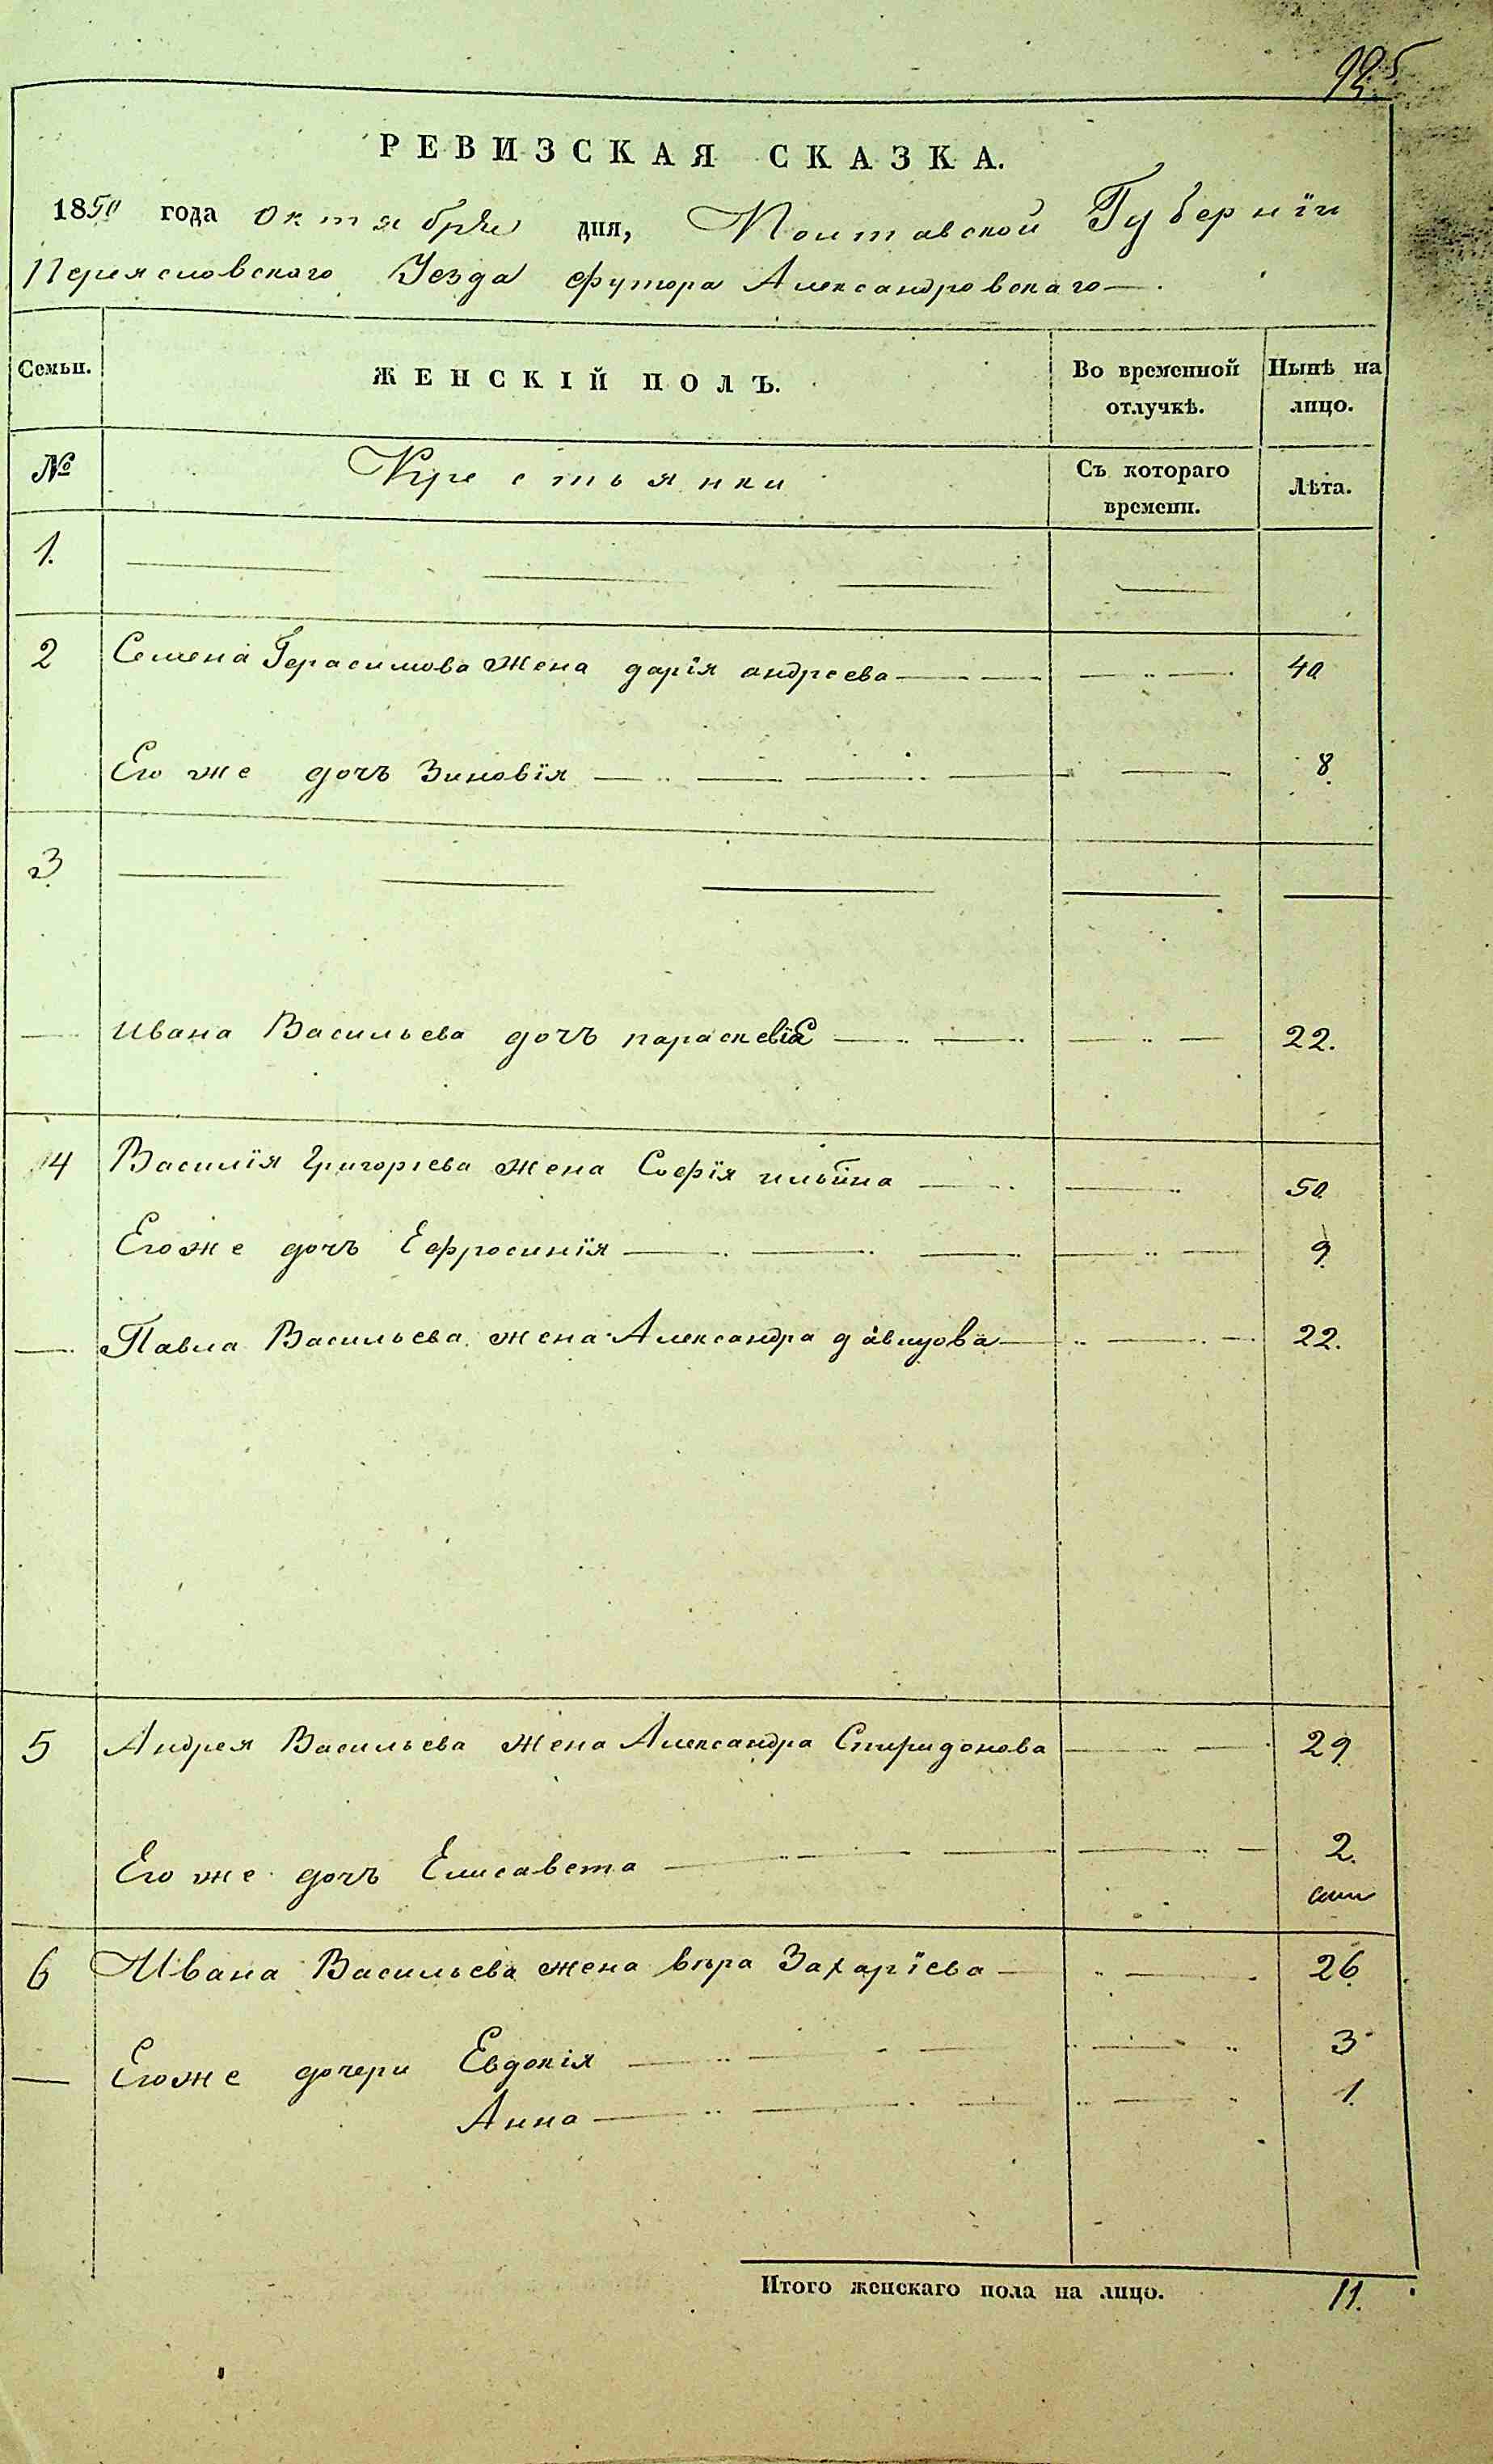 РЕВИЗСКАЯ СКАЗКА.
1850 года октября дня, Полтавской Губернїи
Переясловского Уезда футора Александровскаго
Семьи. ЖЕНСКІЙ ПОЛЪ. Во временной отлучкѣ. Нынѣ на лицо.
№ Крестьянки Съ котораго времени. Лѣта.
1.
2 Семена Герасимова жена дарїя андреева 40
Его же дочъ Зиновїя 8
3
Ивана Васильева дочъ параскевїа 22.
4 Василїя Григорьева жена Софїя ильина 50
Егоже дочъ Ефросинїя 9
Павла Васильева жена Александра давидова 22.
5 Андрея Васильева жена Александра Спиридонова 29
Его же дочъ Елисавета 2.
6 Ивана Васильева жена вѣра Захарїева 26
Егоже дочери Евдокїя 3
Анна 1.
Итого женскаго пола на лицо. 11.